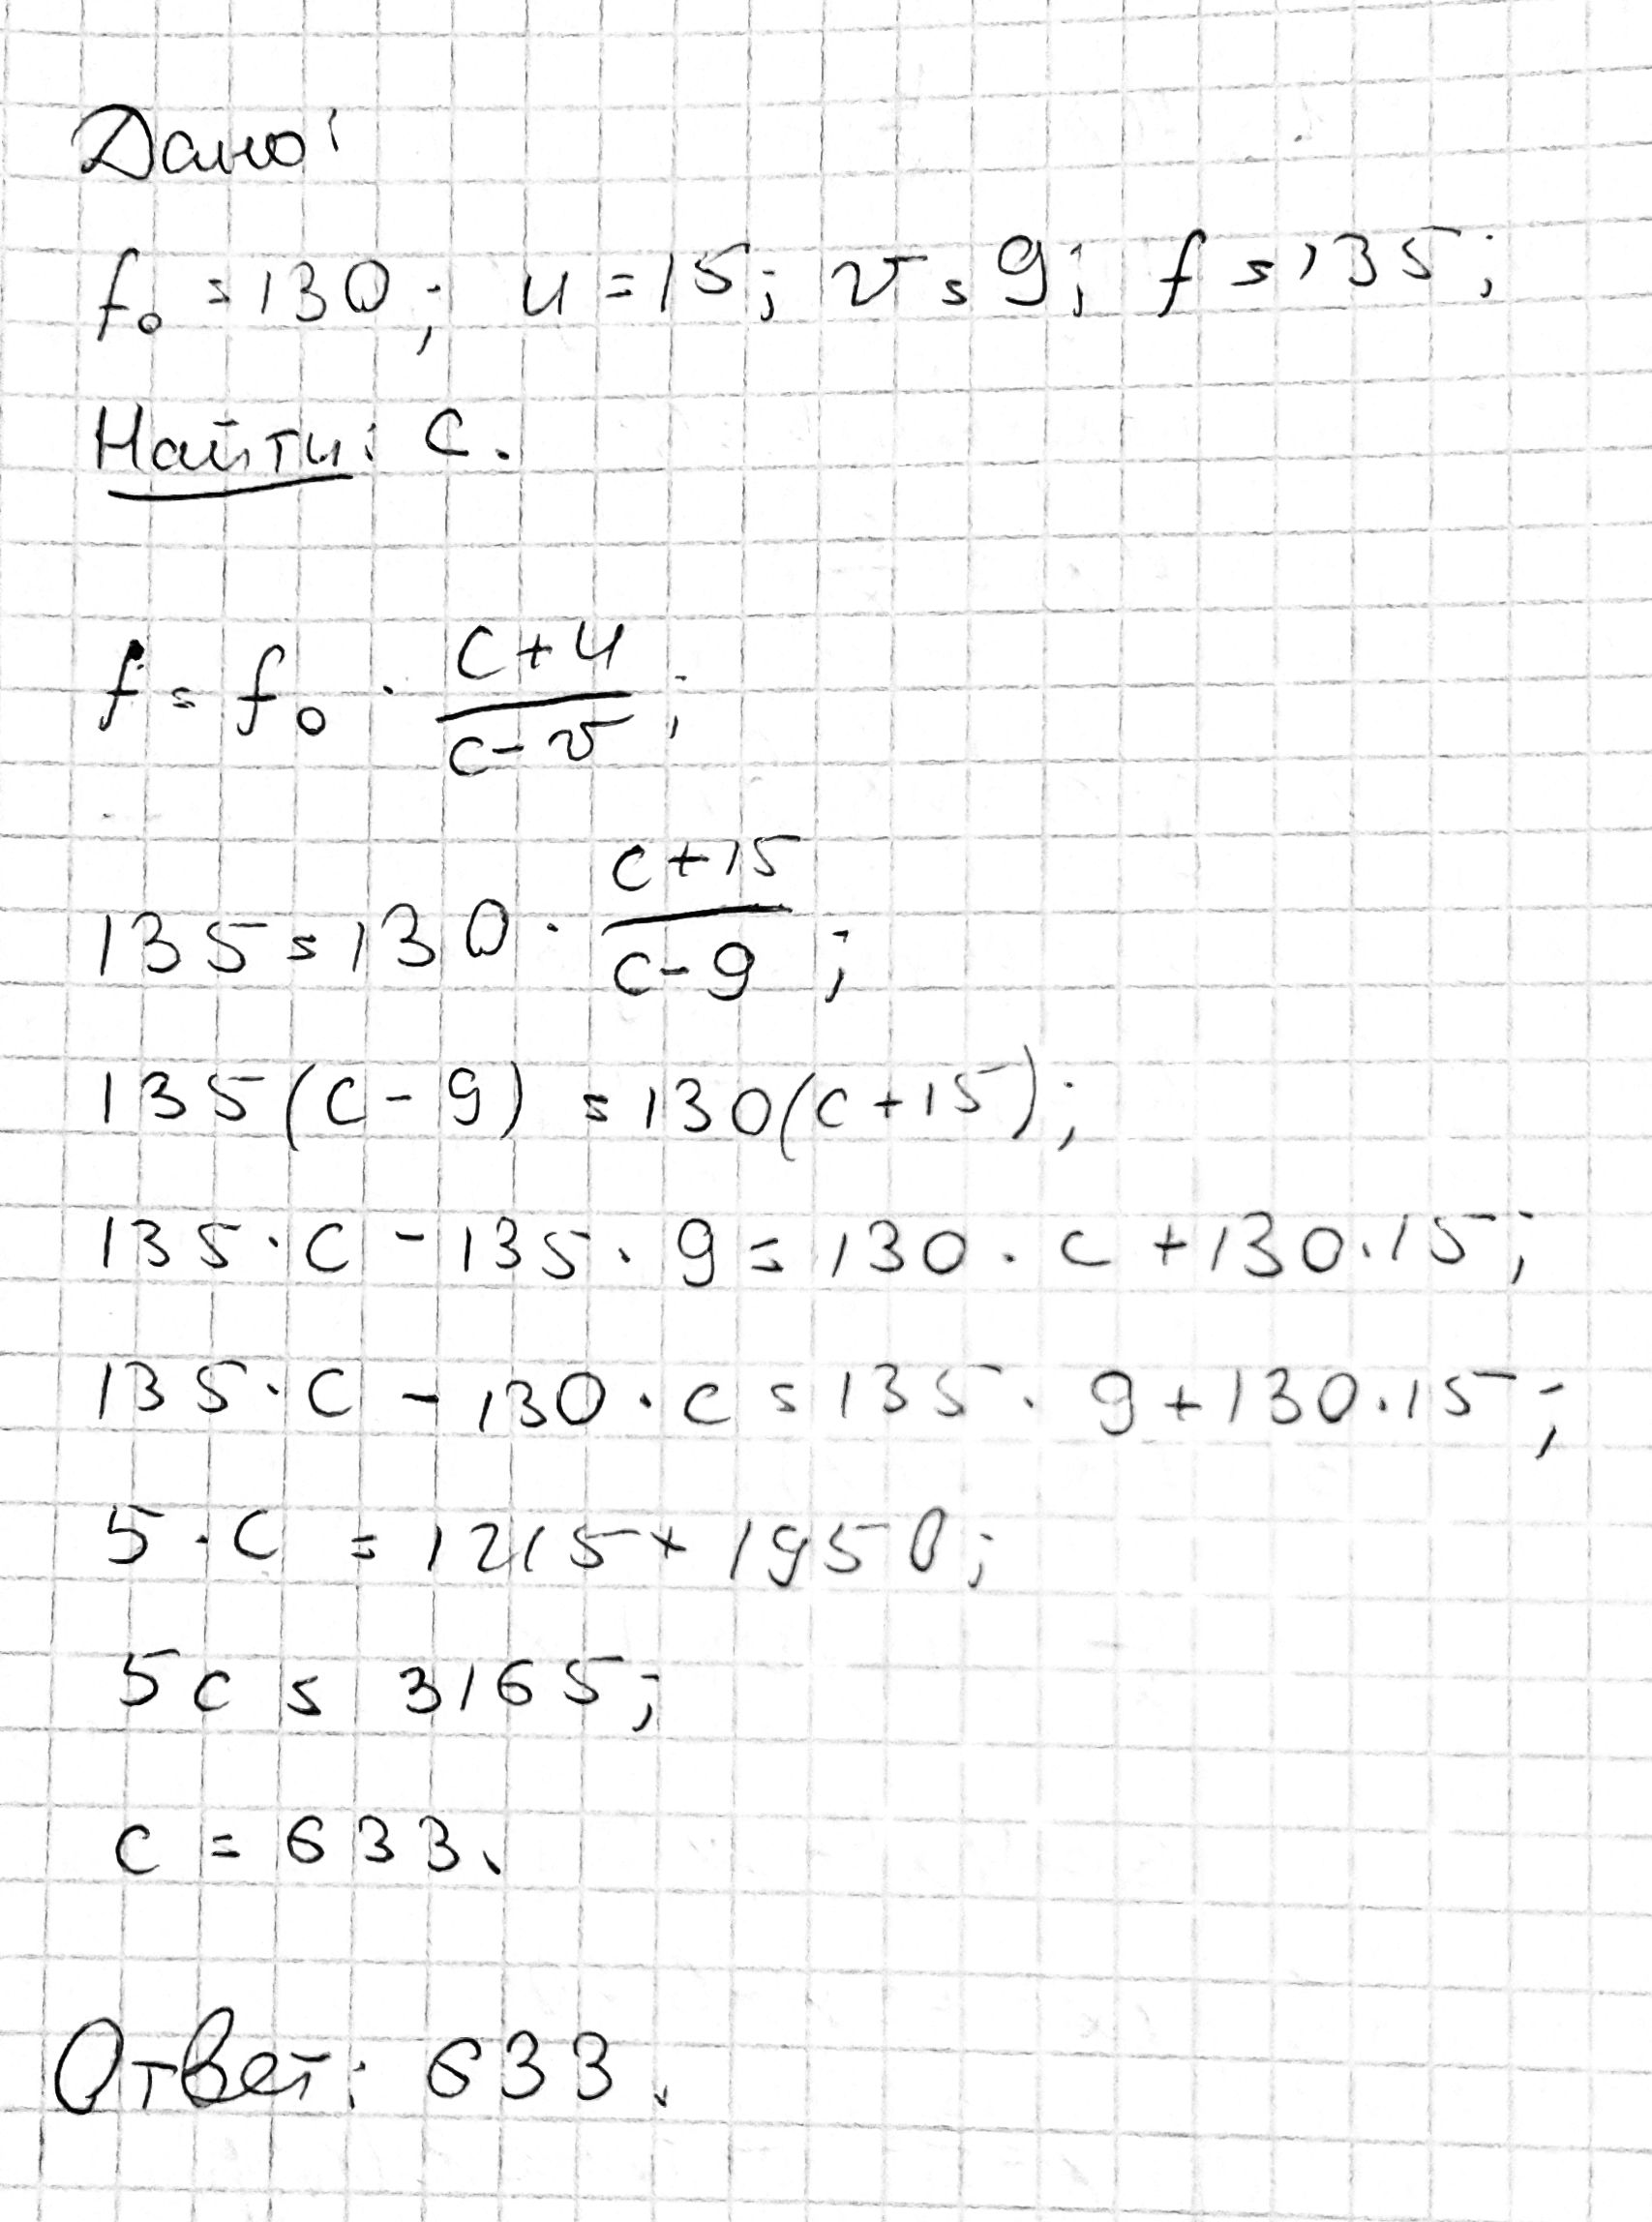 Дано:
f₀ = 130; u = 15; v = 9; f = 135;
Найти: c.
f = f₀ · (c+u)/(c-v);
135 = 130 · (c+15)/(c-9);
135(c-9) = 130(c+15);
135·c - 135·9 = 130·c + 130·15;
135·c - 130·c = 135·9 + 130·15;
5·c = 1215 + 1950;
5c = 3165;
c = 633.
Ответ: 633.